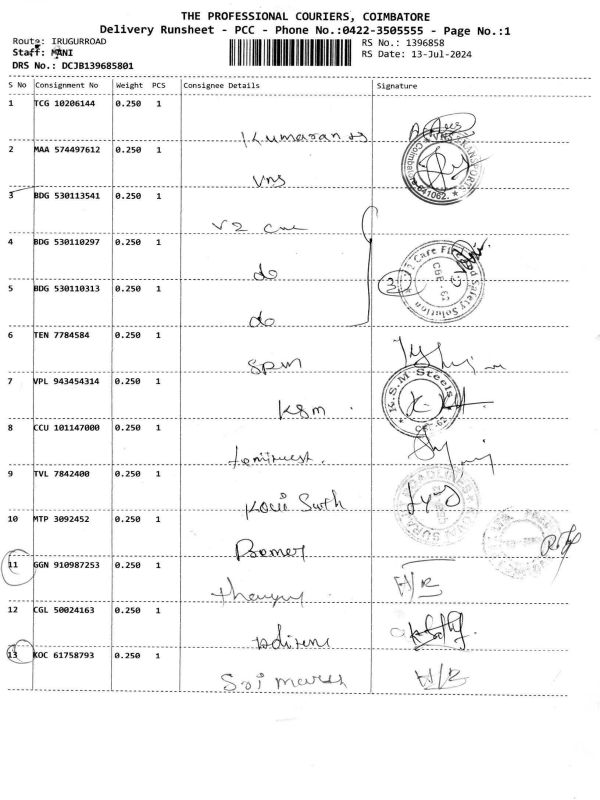 THE PROFESSIONAL COURIERS, COIMBATORE
Delivery Runsheet - PCC - Phone No.:0422-3505555 - Page No.:1
Route: IRUGURROAD
RS No.: 1396858
Staff: MANI
RS Date: 13-Jul-2024
DRS No.: DCJB139685801
S No Consignment No Weight PCS Consignee Details Signature
1 TCG 10206144 0.250 1
Kumaran
2 MAA 574497612 0.250 1
vns
Coimbatore 641062.
3 BDG 530113541 0.250 1
V2 Care
4 BDG 530110297 0.250 1
do
Care Fire and Safety Solution
CBE-62
3
5 BDG 530110313 0.250 1
do
6 TEN 7784584 0.250 1
SPM
7 VPL 943454314 0.250 1
KSM
K.S.M Steels
8 CCU 101147000 0.250 1
9 TVL 7842400 0.250 1
10 MTP 3092452 0.250 1
11 GGN 910987253 0.250 1
H/R
12 CGL 50024163 0.250 1
13 KOC 61758793 0.250 1
Sri
H/R